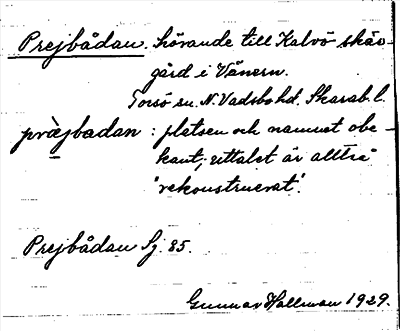 Prejbådan. hörande till Kalvö skär-
gård i Vänern.
Torsö sn. N. Vadsbo hd. Skarab. l.
præjbadan : platsen och namnet obe-
kant; uttalet är alltså
'rekonstruerat'.
Prejbådan Sj. 85.
Gunnar Hallman 1929.